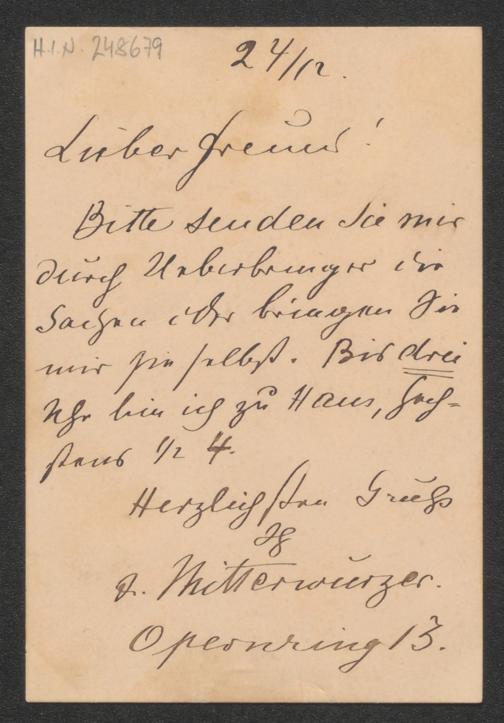 H.I.N. 248679
24/12.
Lieber Freund!
Bitte senden Sie mir
durch Ueberbringer die
Sachen oder bringen Sie
mir sie selbst. Bis drei
Uhr bin ich zu Haus, höch-
stens 1/2 4.
Herzlichsten Gruß
Ihr
F. Mitterwurzer.
Opernring 13.